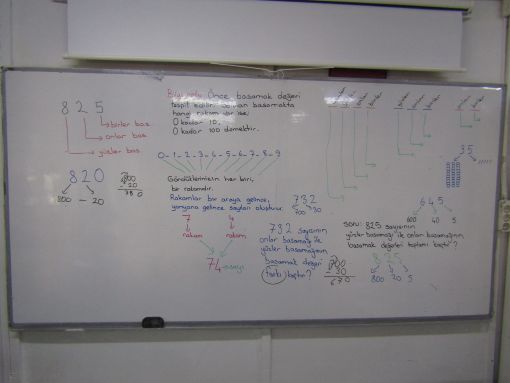 825
birler bas
onlar bas
yüzler bas
820
800 - 20
800
- 20
780
Önce basamak değeri
tespit edilir.
basamakta
hangi rakam var ise,
0 kadar 10,
0 kadar 100 demektir.
0-1-2-3-4-5-6-7-8-9
Gördüklerinizin her biri,
bir rakamdır.
Rakamlar bir araya gelince,
yanyana gelince sayıları oluşturur.
7 4
rakam rakam
74 sayı
732
700 30
732 sayısının
onlar basamağı ile
yüzler basamağının
basamak değeri
farkı kaçtır?
700
- 30
670
35
645
600 40 5
soru: 825 sayısının
yüzler basamağı ile onlar basamağının
basamak değerleri toplamı kaçtır?
825
800 20 5